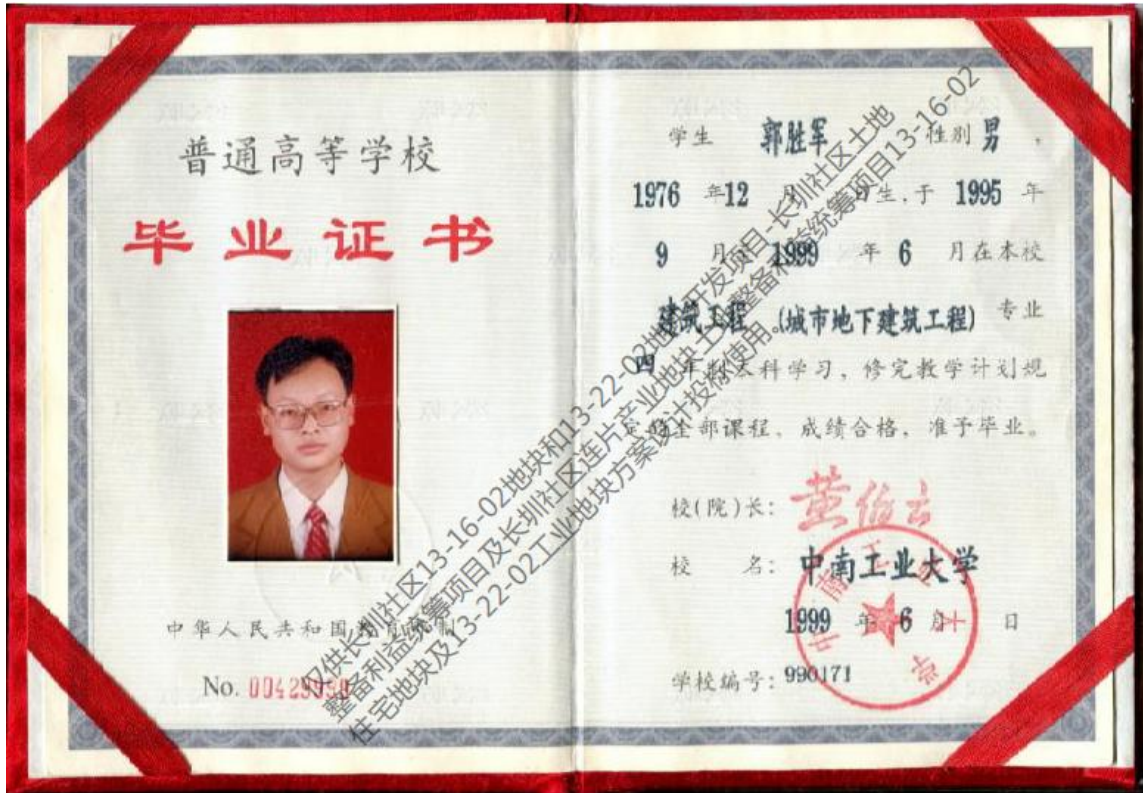 普通高等学校
毕业证书
中华人民共和国教育部制
No. 00429950
学生 郭胜军 性别 男,
1976 年 12 月 日生,于 1995 年
9 月至 1999 年 6 月在本校
建筑工程 (城市地下建筑工程) 专业
四 年制本科学习,修完教学计划规
定的全部课程,成绩合格,准予毕业。
校(院)长: 黄伯云
校 名: 中南工业大学
1999 年 6 月 日
学校编号: 990171
中南工业大学
仅供长圳社区13-16-02地块和13-22-02地块开发项目-长圳社区土地
整备利益统筹项目及长圳社区连片产业地块土地整备利益统筹项目13-16-02
住宅地块及13-22-02工业地块方案设计投标使用。